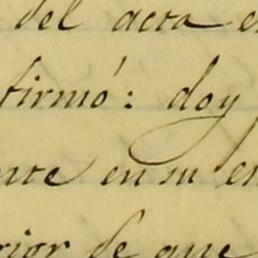 del acta e
firmó: doy
nte en su en
rior de que